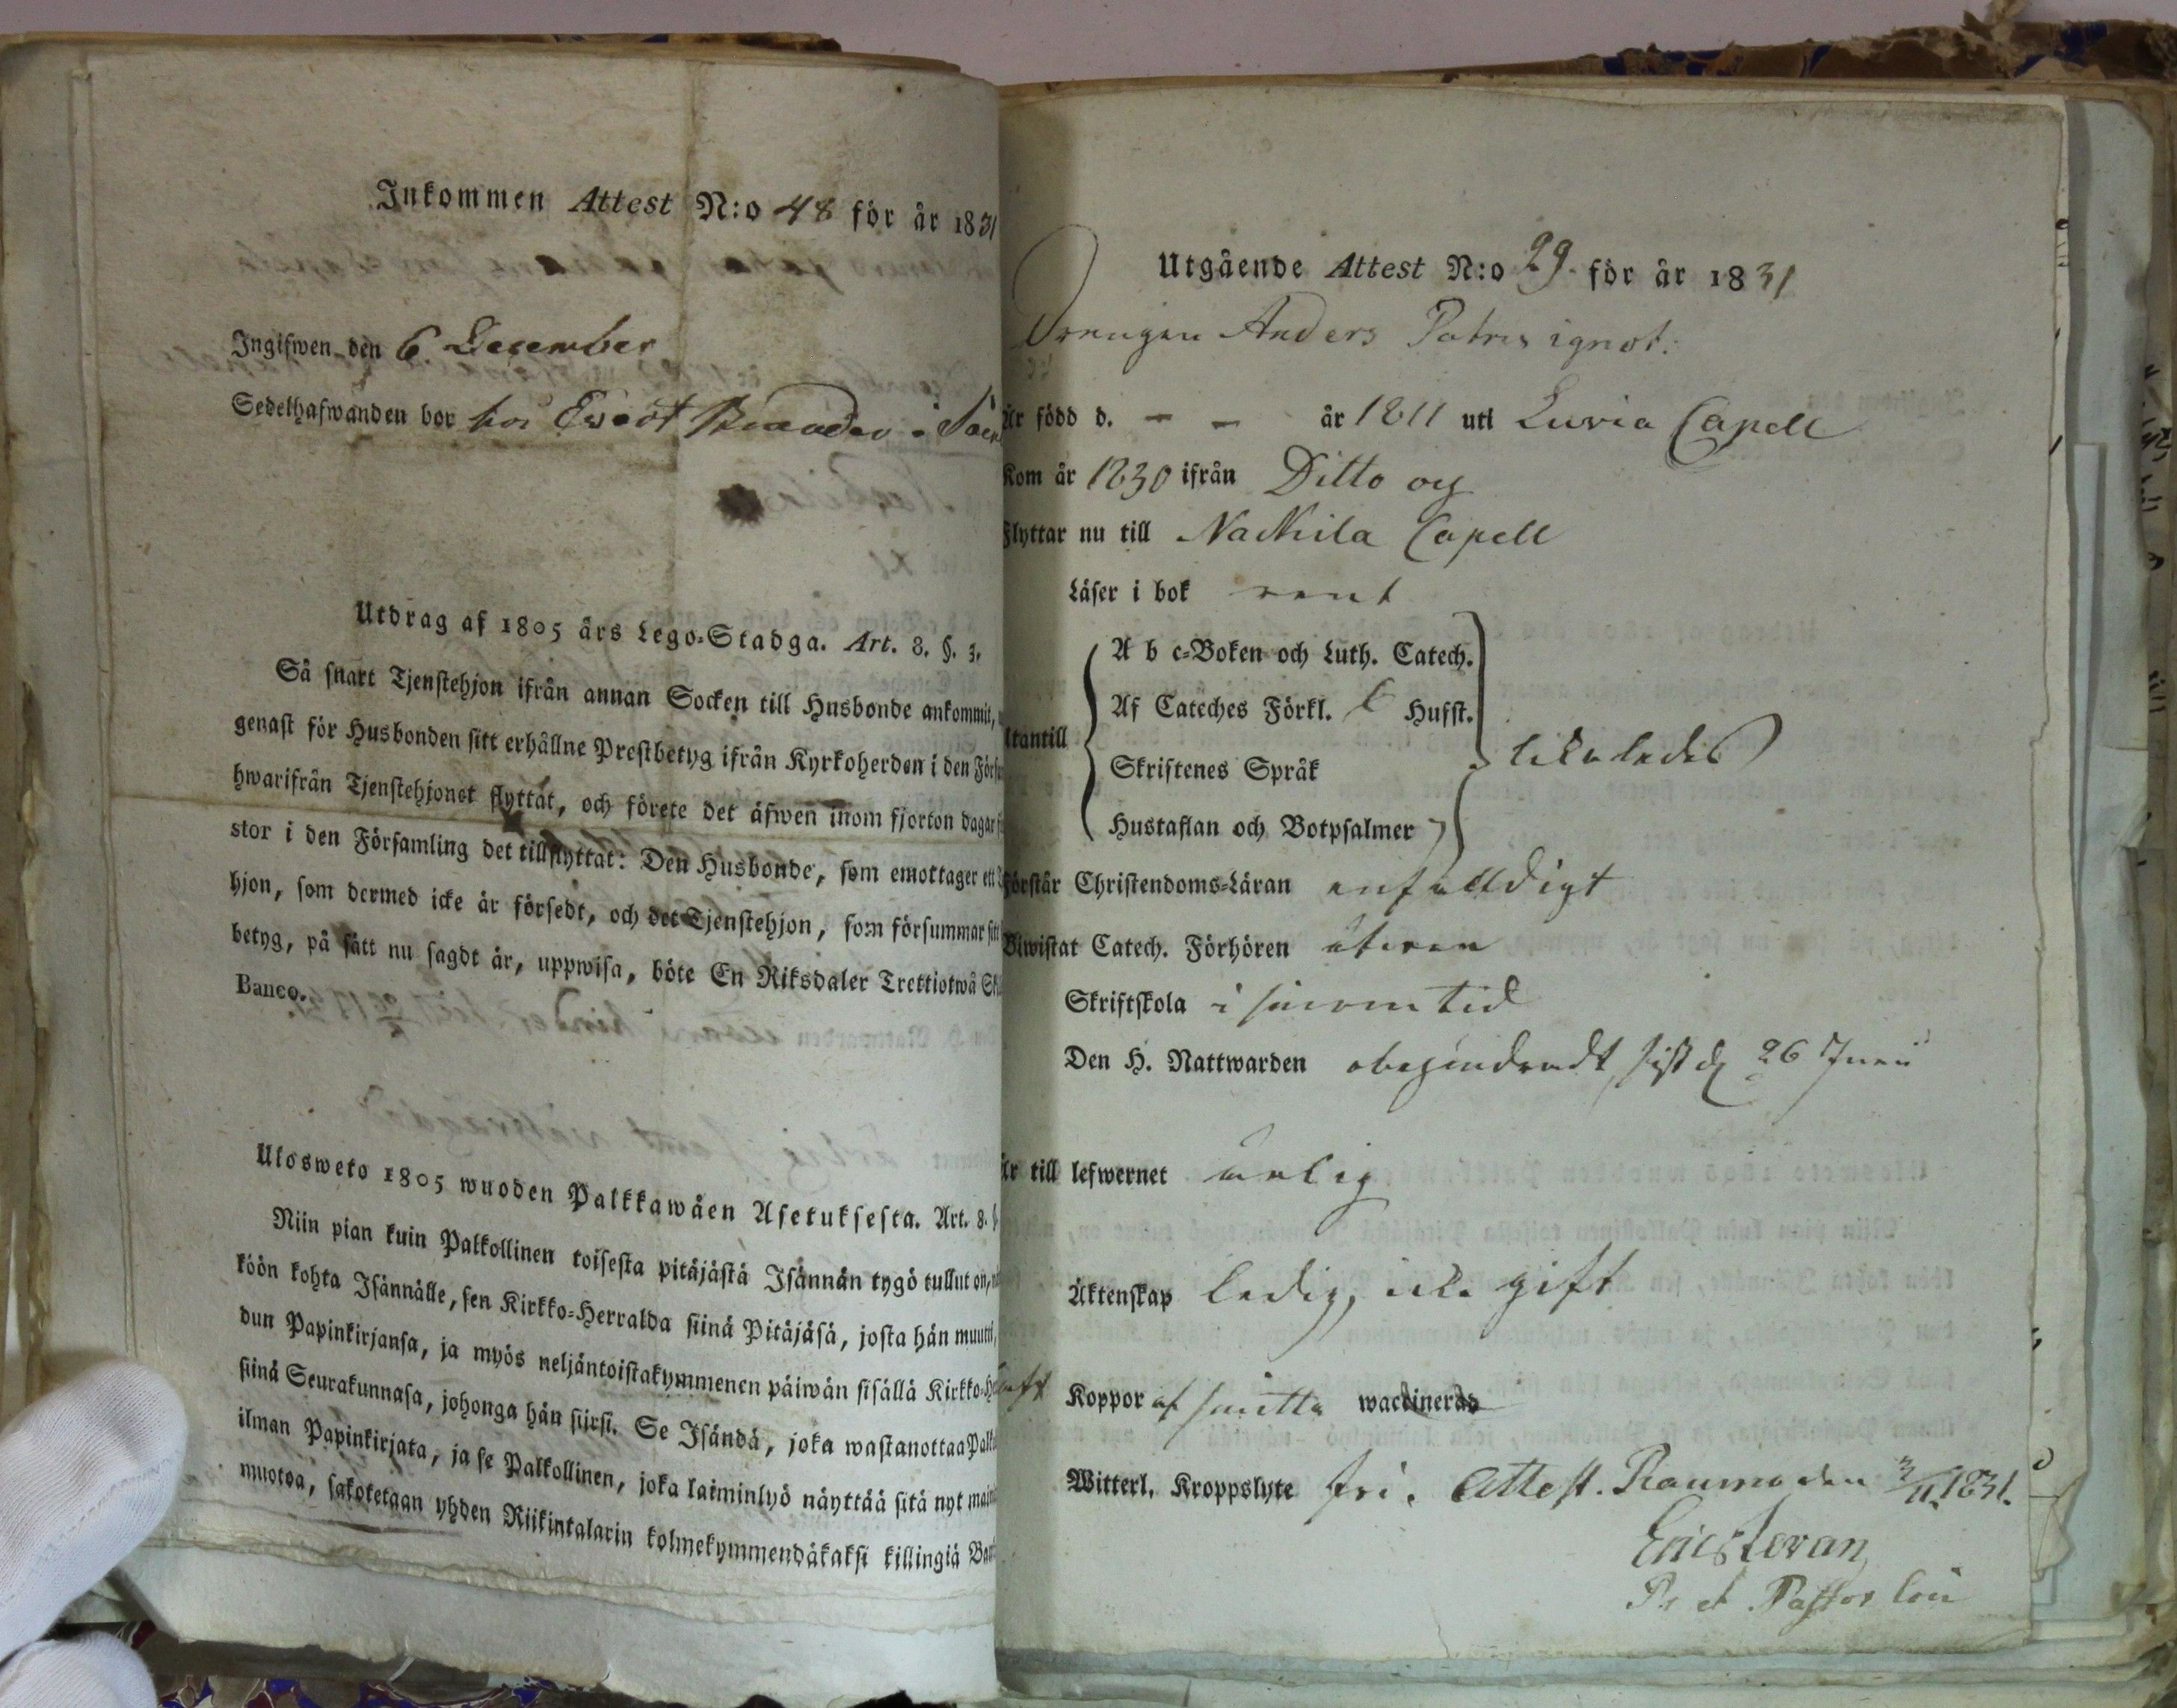 Inkommen Attest N:o 48 för år 1831
Ingifwen den 6 December
Sedelhafwanden bor hos Ewert
Utdrag af 1805 års Lego-Stadga. Art. 8. §. 3.
Så snart Tjenstehjon ifrån annan Socken till Husbonde ankommit,
genast för Husbonden sitt erhållne Prestbetyg ifrån Kyrkoherden i den
hwarifrån Tjenstehjonet flyttat, och förete det äfwen inom fjorton dagar
stor i den Församling det tillflyttat: Den Husbonde, som emottager ett
hjon, som dermed icke är försedt, och det Tjenstehjon, som försummar sitt
betyg, på sätt nu sagdt är, uppwisa, böte En Riksdaler Trettiotwå
Banco.
Ulosweto 1805 wuoden Palkkawäen Asetuksesta. Art. 8.
Niin pian kuin Palkollinen toisesta pitäjästä Isännän tygö tullut on,
köön kohta Isännälle, sen Kirkko-Herralda siinä Pitäjäsä, josta hän muutti,
dun Papinkirjansa, ja myös neljäntoistakymmenen päiwän sisällä
siinä Seurakunnasa, johonga hän siirsi. Se Isändä, joka wastanottaa
ilman Papinkirjata, ja se Palkollinen, joka laiminlyö näyttää sitä nyt
muotoa, sakotetaan yhden Riikintalarin kolmekymmendäkaksi killingiä
Utgående Attest N:o 29. för år 1831
Drengen Anders Patris ignot.
Är född d. - - år 1811 uti Luvia Capell
Kom år 1830 ifrån Ditto og
Flyttar nu till Nakkila Capell
Läser i bok rent
A b c-Boken och Luth. Catech.
Af Cateches Förkl. Hufst.
Utantill
Skriftenes Språk
likaledes
Hustaflan och Botpsalmer
Förstår Christendoms-Läran enfalldigt
Biwistat Catech. Förhören
Skriftskola i sinom tid
Den H. Nattwarden obehindradt, sist d. 26 Junii
Är till lefwernet ärlig
Äktenskap ledig, icke gift
Haft Koppor af smitta waccinerad
Witterl. Kroppslyte fri. Attest. Raumo den 3/11 1831.
Eric Levan
P. et Pastor